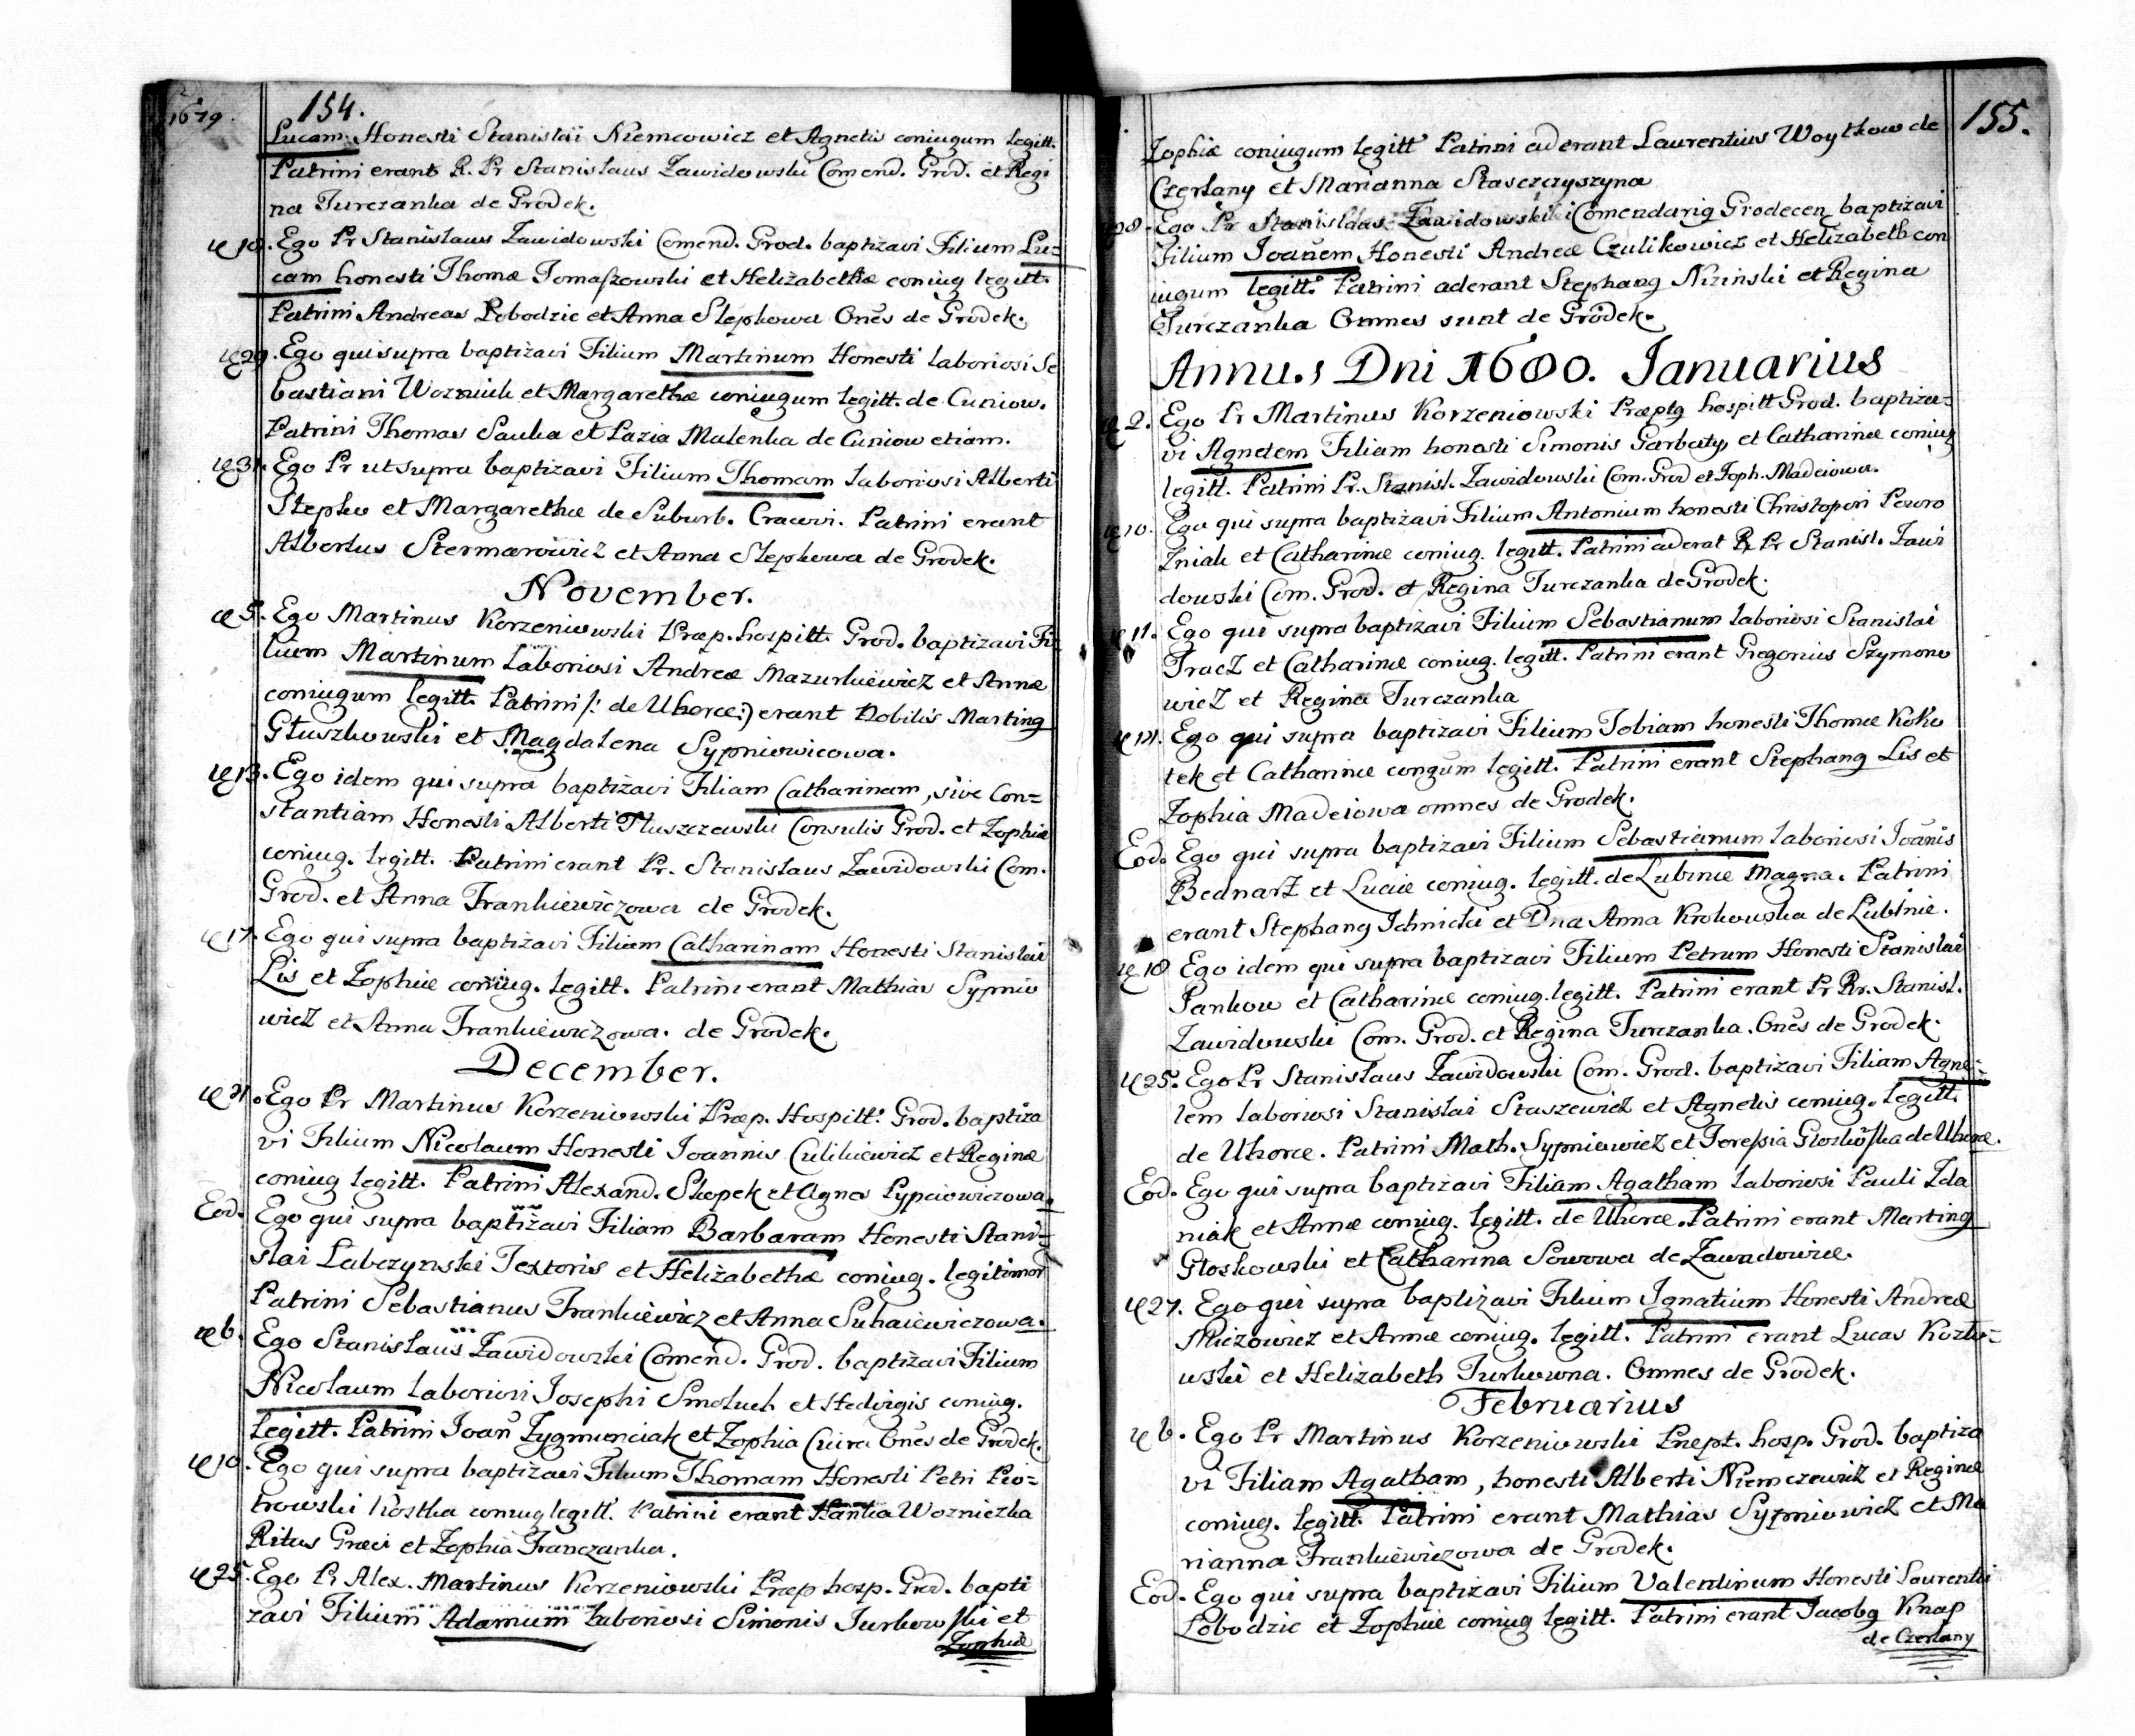 1679.
154.
Lucam Honesti Stanislai Niemcowicz et Agnetis coniugum legitt.
Patrini erant R. Pr Stanislaus Zawidowski Comend. Grod. et Regi
na Turczanka de Grodek.
18. Ego Pr Stanislaus Zawidowski Comend. Grod. baptizavi Filium Lu=
cam honesti Thomæ Tomaszowski et Helizabethæ coniug legitt.
Patrini Andreas Lobodzic et Anna Slepkowa Onēs de Grodek.
29. Ego qui supra baptizavi Filium Martinum Honesti laboriosi Se
bastiani Wozniak et Margarethæ coniugum legitt. de Cuniow.
Patrini Thomas Sauka et Pazia Malenka de Cuniow etiam.
31. Ego Pr ut supra baptizavi Filium Thomam laboriosi Alberti
Stepko et Margarethæ de Suburb. Cracovi. Patrini erant
Albertus Stermarowicz et Anna Slepkowa de Grodek.
November.
5. Ego Martinus Korzeniowski Præp. hospitt. Grod. baptizavi Fi
lium Martinum Laboriosi Andreæ Mazurkiewicz et Annæ
coniugum legitt. Patrini /: de Uhorce:) erant Nobilis Marting
Głuszkowski et Magdalena Sypniowicowa.
13. Ego idem qui supra baptizavi Filiam Catharinam, sive Con=
stantiam Honesti Alberti Tłuszczewski Consulis Grod. et Zophiæ
coniug. legitt. Patrini erant Pr. Stanislaus Zawidowski Com.
Grod. et Anna Frankiewiczowa de Grodek.
17. Ego qui supra baptizavi Filiam Catharinam Honesti Stanislai
Lis et Zophiæ coniug. legitt. Patrini erant Mathias Sypnio
wicz et Anna Frankiewiczowa. de Grodek.
December.
Ego Pr Martinus Korzeniowski Præp. Hospitt. Grod. baptiza
vi Filium Nicolaum Honesti Joannis Culikiewicz et Reginæ
coniug legitt. Patrini Alexand. Slepek et Agnes Pypciowiczowa.
Eod. Ego qui supra baptizavi Filiam Barbaram Honesti Stani=
slai Labczynski Textoris et Helizabethæ coniug. legitimor
Patrini Sebastianus Frankiewicz et Anna Suhaiewiczowa.
6. Ego Stanislaus Zawidowski Comend. Grod. baptizavi Filium
Nicolaum laboriosi Josephi Smoluch et Hedvigis coniug.
legitt. Patrini Joan Zygmunciak et Zophia Onēs de Grodek.
10. Ego qui supra baptizavi Filium Thomam Honesti Petri Pio=
trowski Kostka coniug legitt. Patrini erant Hanka Wozniczka
Ritus Græci et Zophia Franczanka.
25. Ego Pr Alex. Martinus Korzeniowski Præp hosp. Grod. bapti
zavi Filium Adamum Laboriosi Simonis Jurkowski et
Zophiæ
155.
Zophiæ coniugum legitt Patrini aderant Laurentius Woytkow de
Czerlany et Marianna Stasczczyszyna
28. Ego Pr Stanislaus Zawidowski Comendarig Grodecen baptizavi
Filium Joanem Honesti Andreæ Czulikowicz et Helizabeth con
iugum legitt. Patrini aderant Stephang Nizinski et Regina
Turczanka Omnes sunt de Grodek.
Annus Dni 1680. Januarius
2. Ego Pr Martinus Korzeniowski Præptg hospitt Grod. baptiza=
vi Agnetem Filiam honesti Simonis Garbaty et Catharinæ coniug
legitt. Patrini Pr. Stanisl. Zawidowski Com. Grod et Zoph. Madeiowa.
10. Ego qui supra baptizavi Filium Antonium honesti Christopori Powro
zniak et Catharinæ coniug. legitt. Patrini aderat R Pr Stanisl. Zawi
dowski Com. Grod. et Regina Turczanka de Grodek.
11. Ego qui supra baptizavi Filium Sebastianum laboriosi Stanislai
Tracz et Catharinæ coniug. legitt. Patrini erant Gregorius Szymono
wicz et Regina Turczanka
14. Ego qui supra baptizavi Filium Tobiam honesti Thomæ Koko
tek et Catharinæ congum legitt. Patrini erant Stephang Lis et
Zophia Madeiowa omnes de Grodek.
Eod. Ego qui supra baptizavi Filium Sebastianum laboriosi Joānis
Bednarz et Luciæ coniug. legitt. de Lubinie Magna. Patrini
erant Stephang Ichnicki et Dna Anna Krokowska de Lubinie.
18 Ego idem qui supra baptizavi Filium Petrum Honesti Stanislai
Pankow et Catharinæ coniug. legitt. Patrini erant Pr Rr. Stanisl.
Zawidowski Com. Grod. et Regina Turczanka. Onēs de Grodek.
25. Ego Pr Stanislaus Zawidowski Com. Grod. baptizavi Filiam Agne=
tem laboriosi Stanislai Staszewicz et Agnetis coniug. legitt.
de Uhorce. Patrini Math. Sypniewicz et Teressia Głoskoska de Uhorce.
Eod. Ego qui supra baptizavi Filiam Agatham laboriosi Pauli Zda
niak et Annæ coniug. legitt. de Uhorce. Patrini erant Marting
Głoskowski et Catharina Sowowa de Zawadowice.
27. Ego qui supra baptizavi Filium Ignatium Honesti Andreæ
Miczowicz et Annæ coniug. legitt. Patrini erant Lucas Kozło=
wski et Helizabeth Turkowna. Omnes de Grodek.
Februarius
6. Ego Pr Martinus Korzeniowski Præpt. hosp. Grod. baptiza
vi Filiam Agatham, honesti Alberti Niemczewicz et Reginæ
coniug. legitt. Patrini erant Mathias Sypniowicz et Ma
rianna Frankiewiczowa de Grodek.
Eod. Ego qui supra baptizavi Filium Valentinum Honesti Laurentii
Lobodzic et Zophiæ coniug legitt. Patrini erant Jacobg Knap
de Czerlany